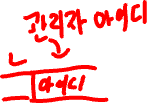 관리자 아이디
아이디